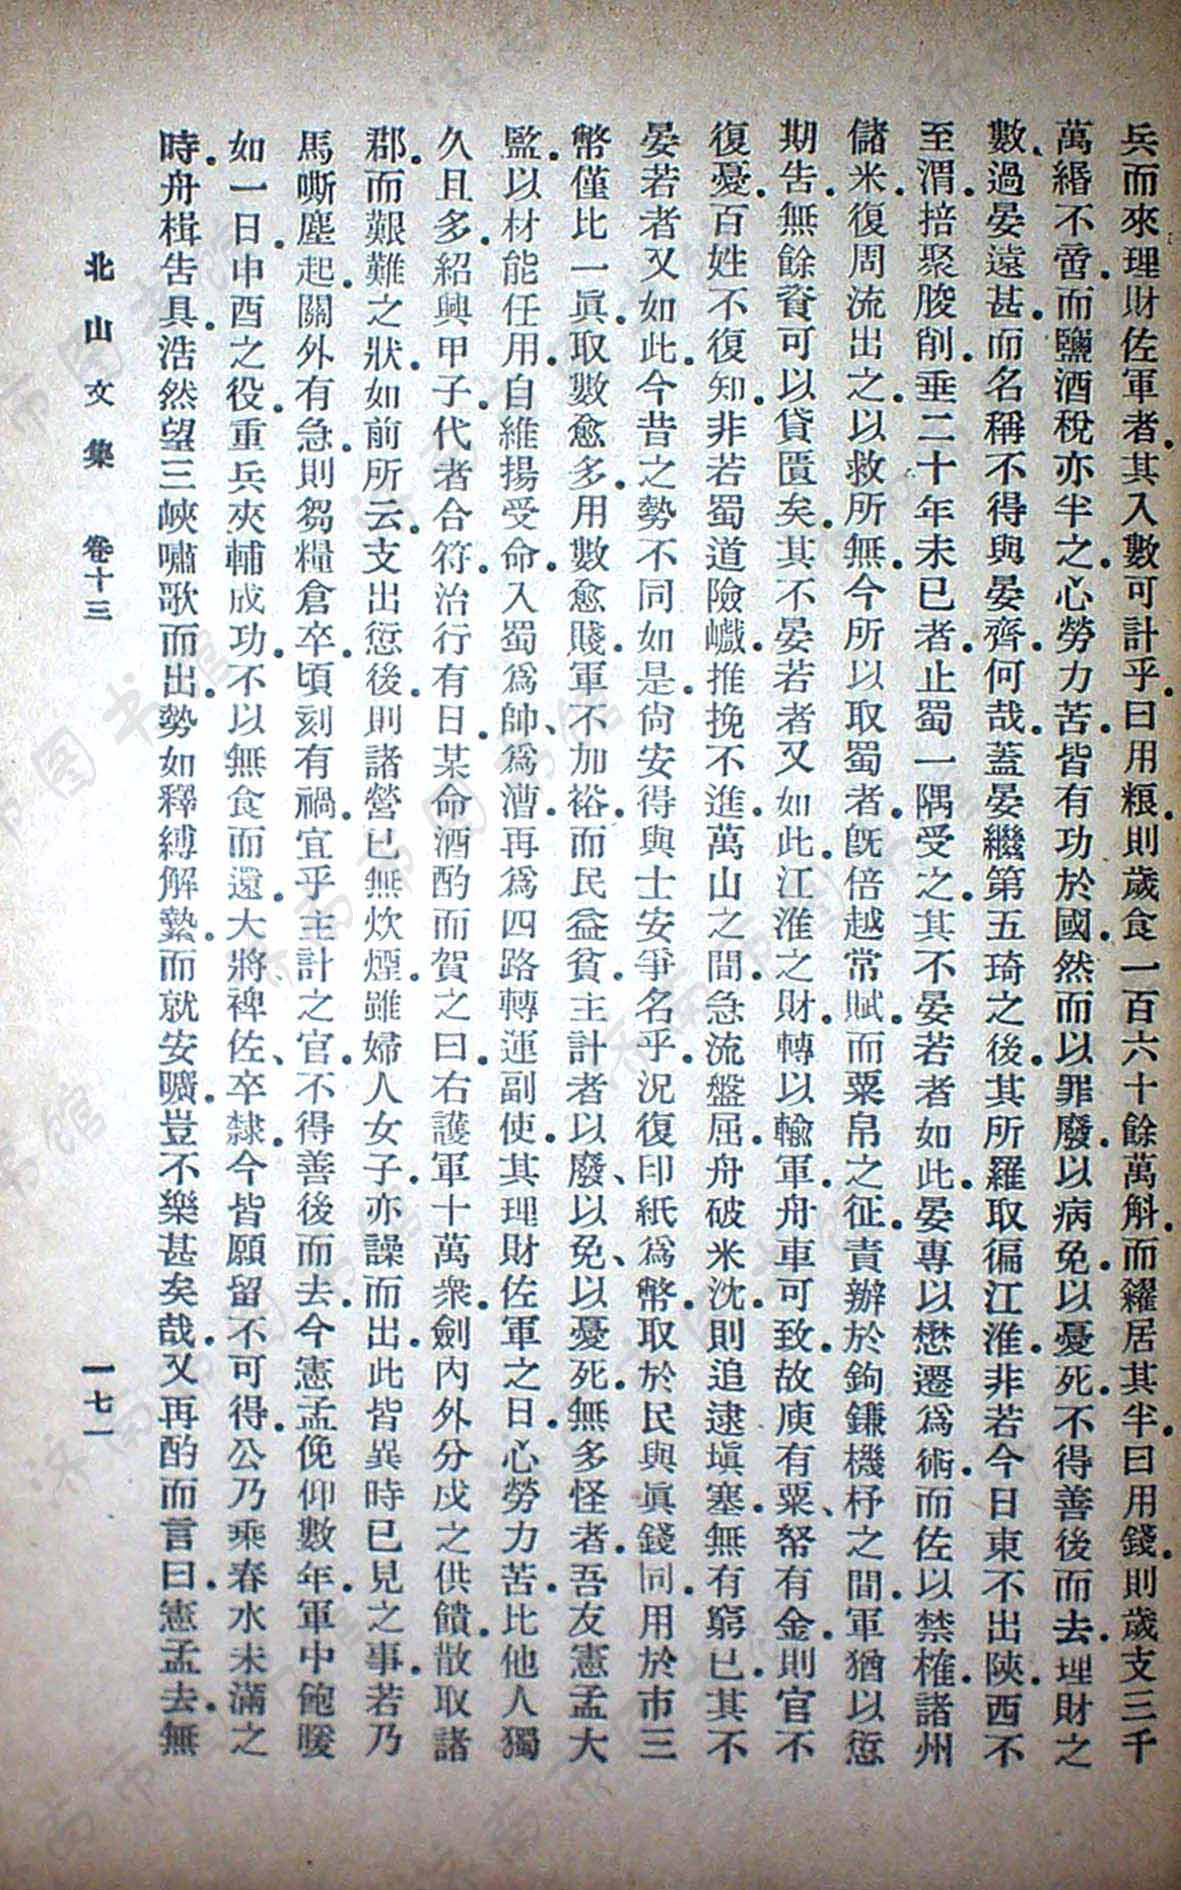 兵而來理財佐軍者其入數可計乎曰用粮則歲食一百六十餘萬斛而糴居其半曰用錢則歲支三千
萬緡不啻而鹽酒稅亦半之心勞力苦皆有功於國然而以罪廢以病免以憂死不得善後而去理財之
數過晏遠甚而名稱不得與晏齊何哉蓋晏繼第五琦之後其所羅取徧江淮非若今日東不出陝西不
至渭掊聚脧削垂二十年未已者止蜀一隅受之其不晏若者如此晏專以懋遷爲術而佐以禁榷諸州
儲米復周流出之以救所無今所以取蜀者旣倍越常賦而粟帛之征責辦於鉤鎌機杼之間軍猶以愆
期告無餘資可以貸匱矣其不晏若者又如此江淮之財轉以輸軍舟車可致故庾有粟帑有金則官不
復憂百姓不復知非若蜀道險巇推挽不進萬山之間急流盤屈舟破米沈則追逮塡塞無有窮已其不
晏若者又如此今昔之勢不同如是尙安得與士安爭名乎況復印紙爲幣取於民與眞錢同用於市三
幣僅比一眞取數愈多用數愈賤軍不加裕而民益貧主計者以廢以免以憂死無多怪者吾友憲孟大
監以材能任用自維揚受命入蜀爲帥爲漕再爲四路轉運副使其理財佐軍之日心勞力苦比他人獨
久且多紹興甲子代者合符治行有日某命酒酌而賀之曰右護軍十萬衆劍內外分戍之供饋散取諸
郡而艱難之狀如前所云支出愆後則諸營已無炊煙雖婦人女子亦譟而出此皆異時已見之事若乃
馬嘶塵起關外有急則芻糧倉卒頃刻有禍宜乎主計之官不得善後而去今憲孟俛仰數年軍中飽暖
如一日申酉之役重兵夾輔成功不以無食而還大將裨佐卒隸今皆願留不可得公乃乘春水未滿之
時舟楫告具浩然望三峽嘯歌而出勢如釋縛解縶而就安曠豈不樂甚矣哉又再酌而言曰憲孟去無
北山文集 卷十三 一七一